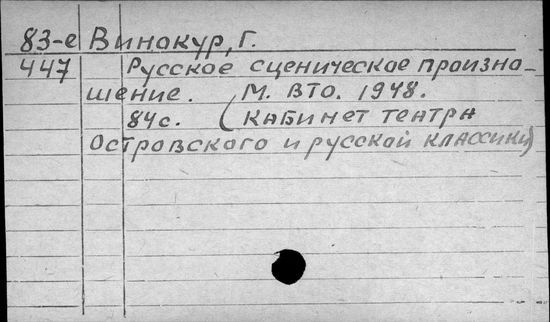 83-е Винокур, Г.
447 Русское сценическое произно-
шение. М. ВТО. 1948.
84с. (Кабинет театра
Островского и русской классики)